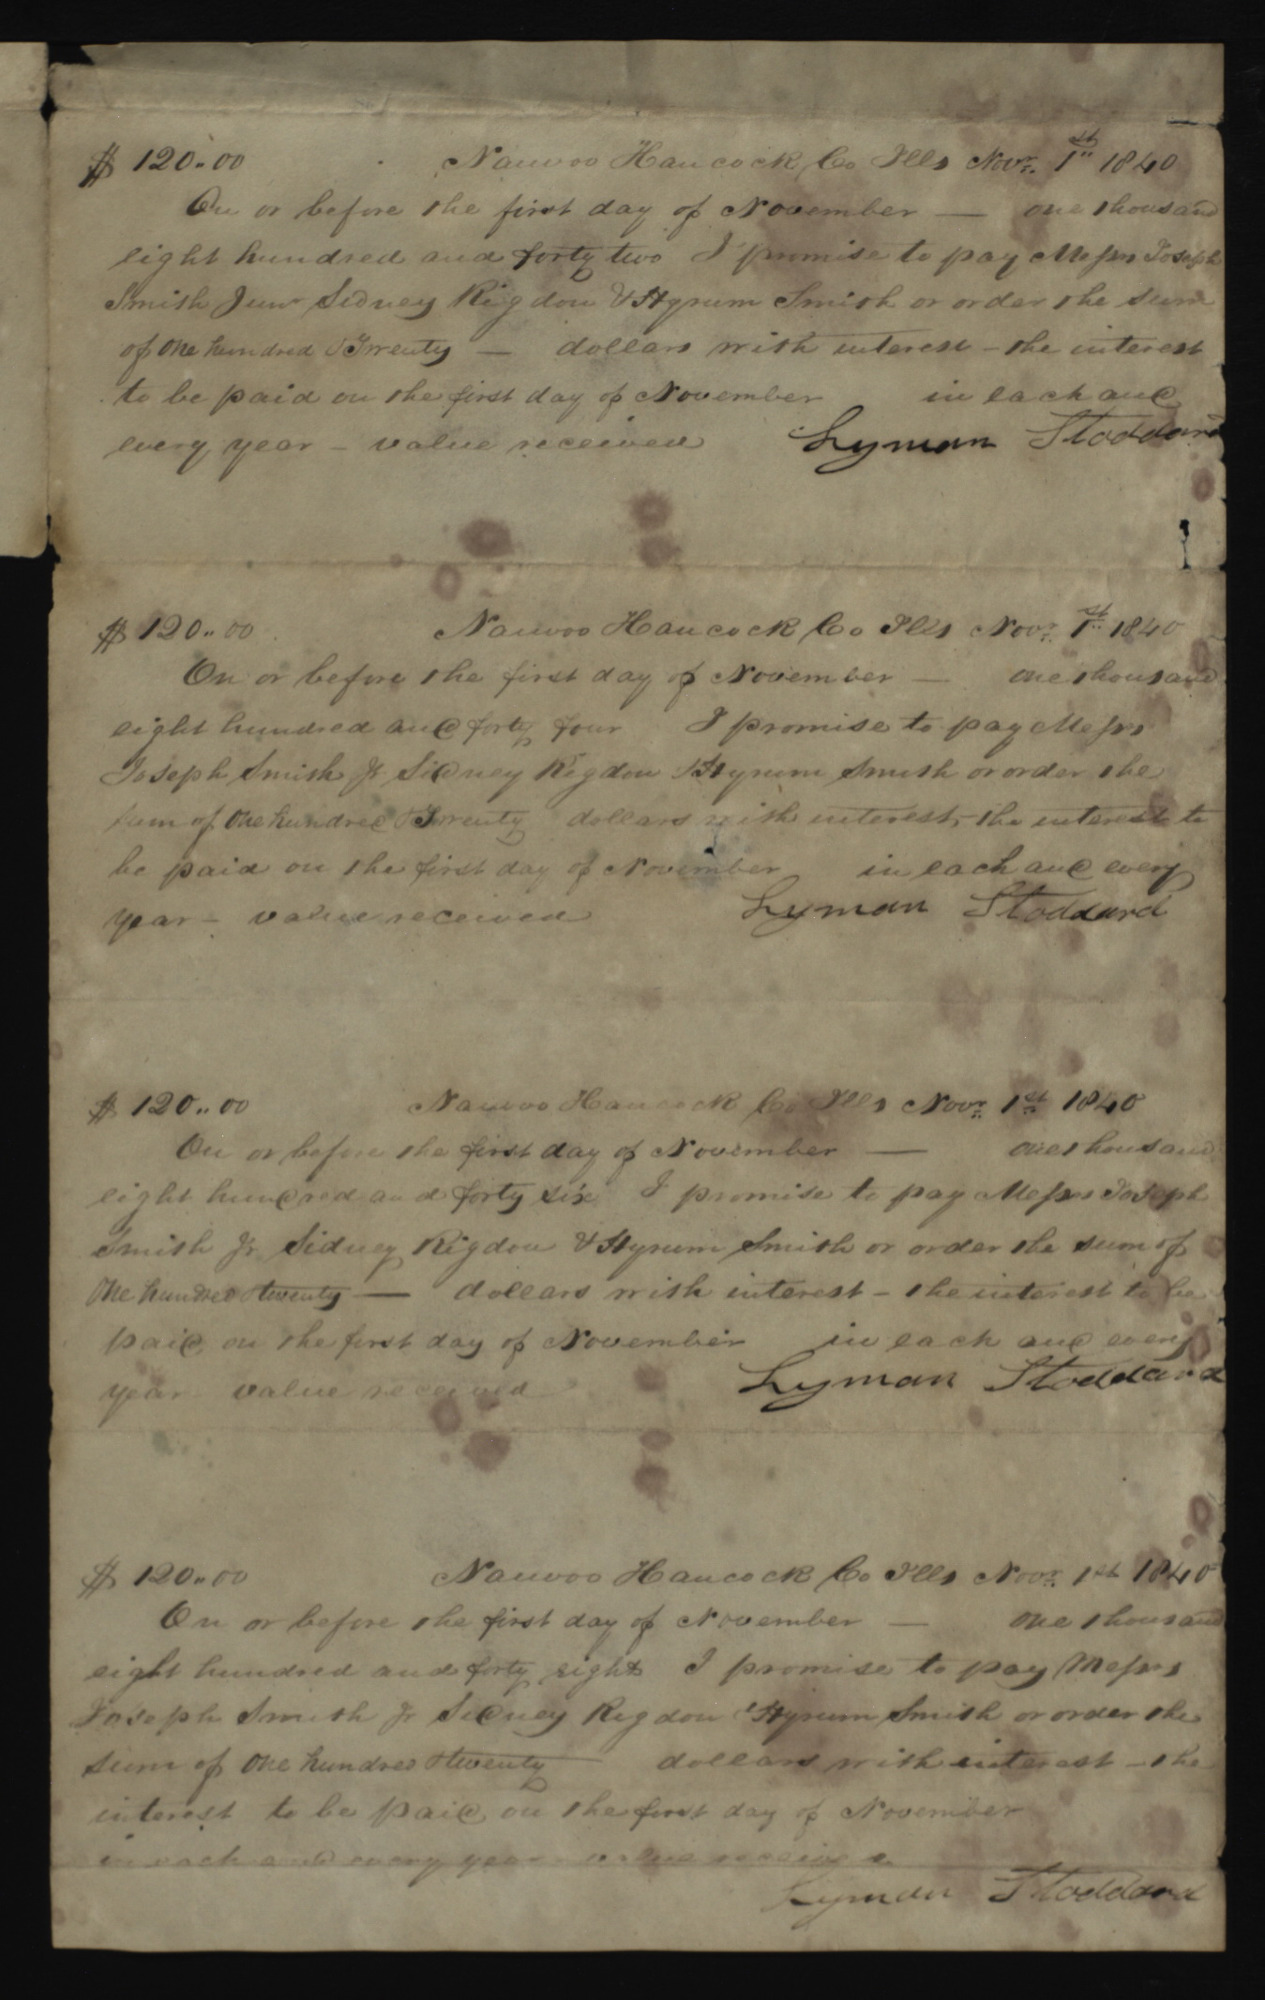 $ 120.. 00 Nauvoo Hancock Co Ills Novr. 1st 1840
On or before the first day of November — one thousand
eight hundred and forty two I promise to pay Messrs Joseph
Smith Junr Sidney Rigdon & Hyrum Smith or order the sum
of One hundred & Twenty — dollars with interest – the interest
to be paid on the first day of November in each and
every year – value received Lyman Stoddard
$ 120.. 00 Nauvoo Hancock Co Ills Novr. 1st 1840
On or before the first day of November — one thousand
eight hundred and forty four I promise to pay Messrs
Joseph Smith Jr Sidney Rigdon & Hyrum Smith or order the
sum of One hundred & Twenty dollars with interest, the interest to
be paid on the first day of November in each and every
year – value received Lyman Stoddard
$ 120.. 00 Nauvoo Hancock Co Ills Novr. 1st 1840
On or before the first day of November — one thousand
eight hundred and forty six I promise to pay Messrs Joseph
Smith Jr Sidney Rigdon & Hyrum Smith or order the sum of
One hundred & twenty — dollars with interest – the interest to be
paid on the first day of November in each and every
year value received Lyman Stoddard
$ 120.. 00 Nauvoo Hancock Co Ills Novr. 1st 1840
On or before the first day of November — one thousand
eight hundred and forty eight I promise to pay Messrs
Joseph Smith Jr Sidney Rigdon & Hyrum Smith or order the
sum of One hundred & twenty — dollars with interest – the
interest to be paid on the first day of November
in each and every year value received
Lyman Stoddard